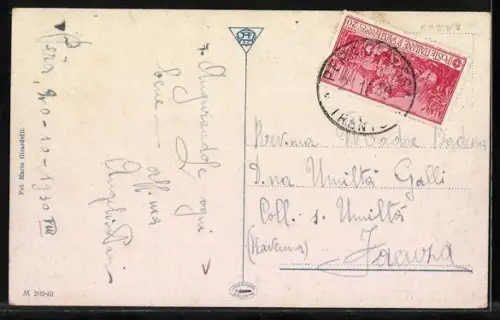 Augurandole ogni
bene
aff.ma
Pera, 20-10-1930 VIII
Fot. Mario Girardelli.
M 20940
POSTE ITALIANE
Rev.ma Madre Badessa
D.na Umiltà Galli
Coll. S. Umiltà
(Ravenna) Faenza